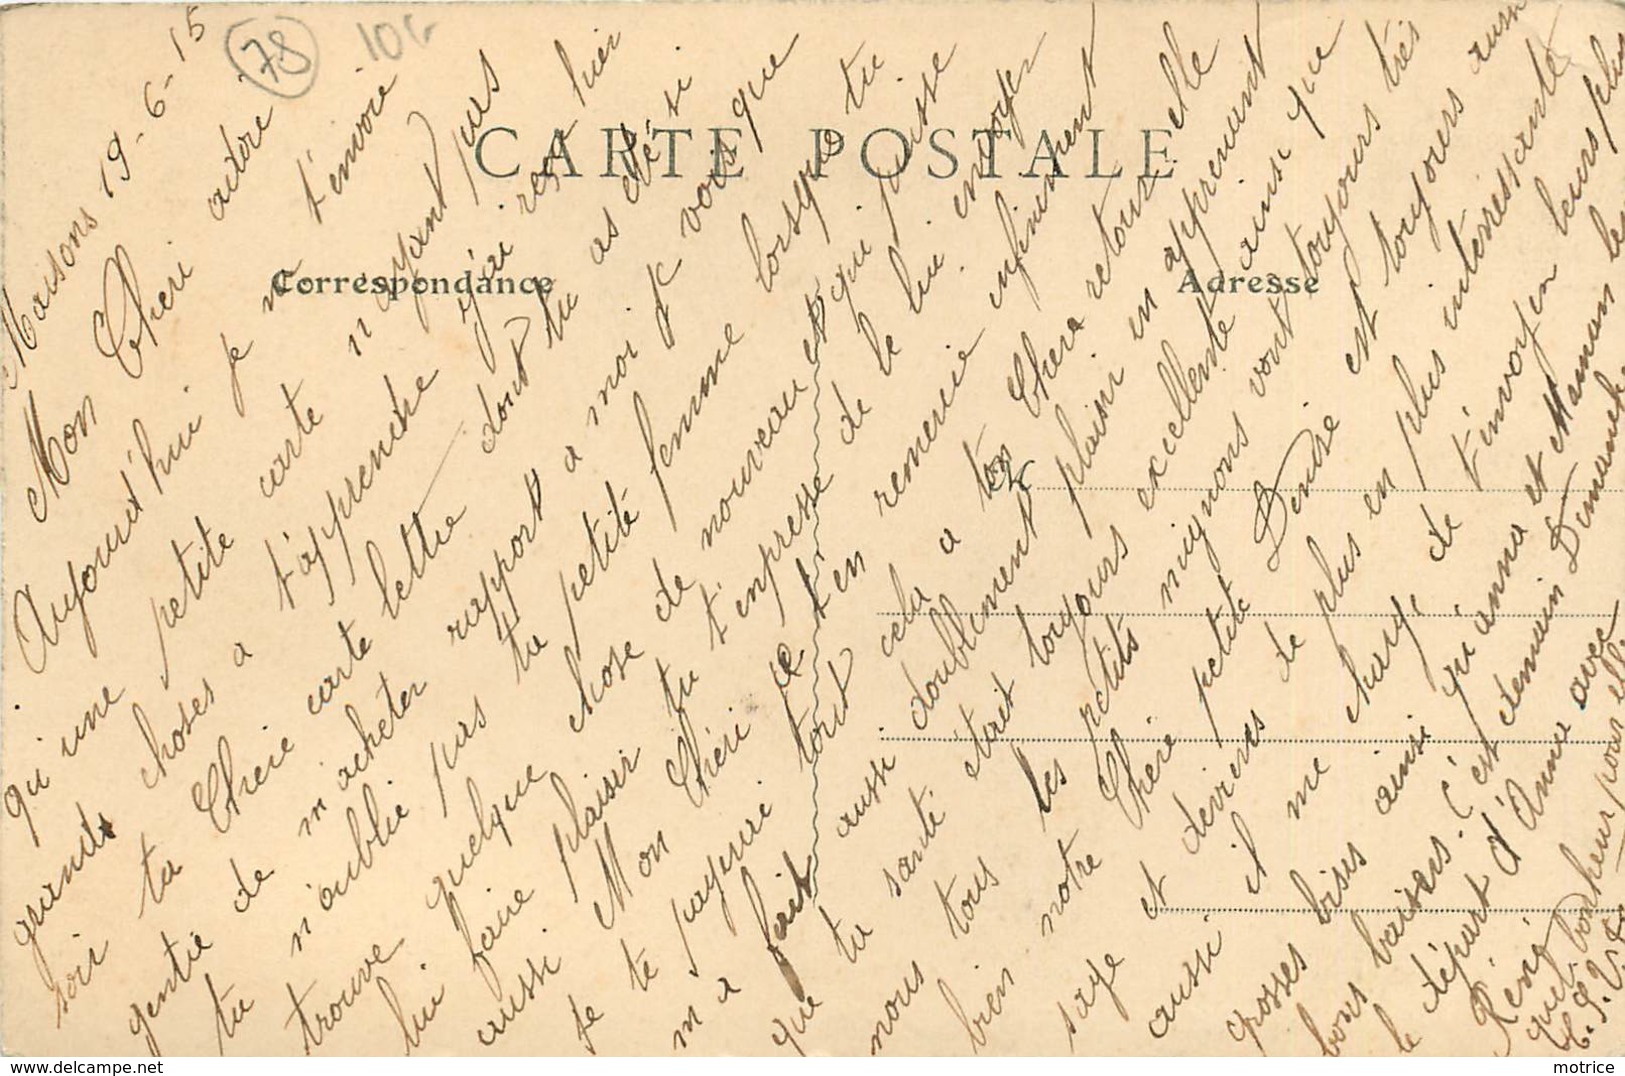 78
10
CARTE POSTALE
Correspondance
Adresse
Maisons 19-6-15
Mon Cheri adoré
Aujourd'hui je n t'envoie
qu'une petite carte n'ayant pas
grands choses a t'apprendre j'ai reçu hier
soir ta Cherie carte lettre dont tu as été si
gentie de m'acheter rapport a moi je vois que
tu n'oublie pas ta petite femme lorsque tu
trouve quelque chose de nouveau et qui puisse
lui faire plaisir tu t'enpresse de le lui envoyer
aussi Mon Chéri je t'en remerie infiniment
je te payerai tout cela a ton Cher retour elle
m'a fait aussi doublement plaisir en apprenant
que ta santé était toujours excellente ainsi que
nous tous les petits mignons vont toujours très
bien notre Chère petite Denise est toujours aussi
sage et devires de plus en plus interressante
aussi il me charge de t'invoyer leurs plus
grosses bises ainsi qu'anna et Maman
bons baisers. C'est demain Dimanche
le départ d'Anna avec
René
quel bonheur pour elle